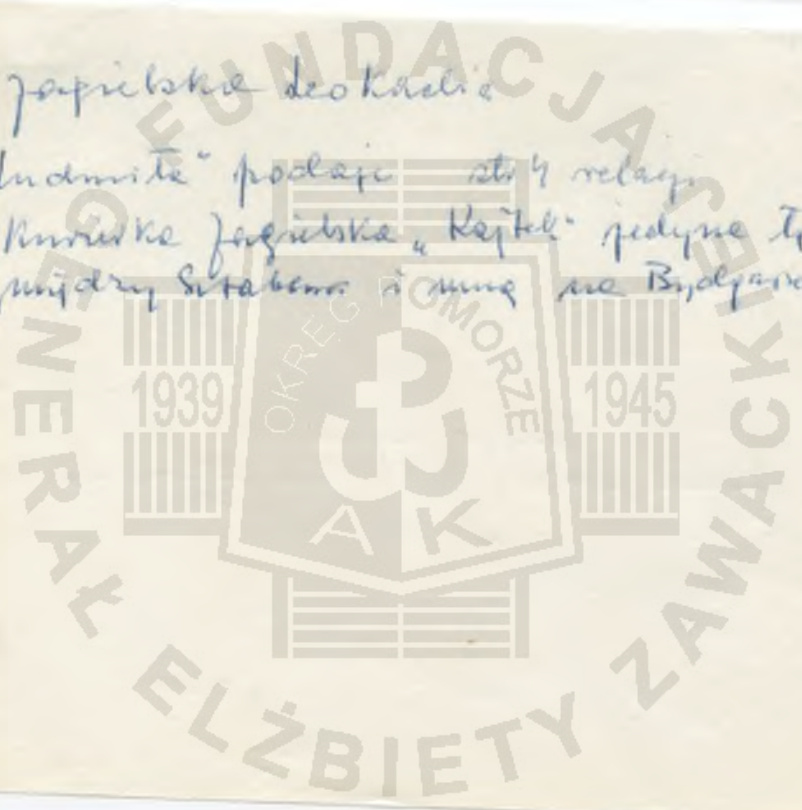 Jagielska Leokadia
Ludmiła" podaje str 4 relacji
Kurierka Jagielska „Kajtek" jedyna łą
między Sztabem i mną na Bydgoszc
FUNDACJA GENERAŁ ELŻBIETY ZAWACKIEJ
OKRĘG POMORZE
1939
1945
AK